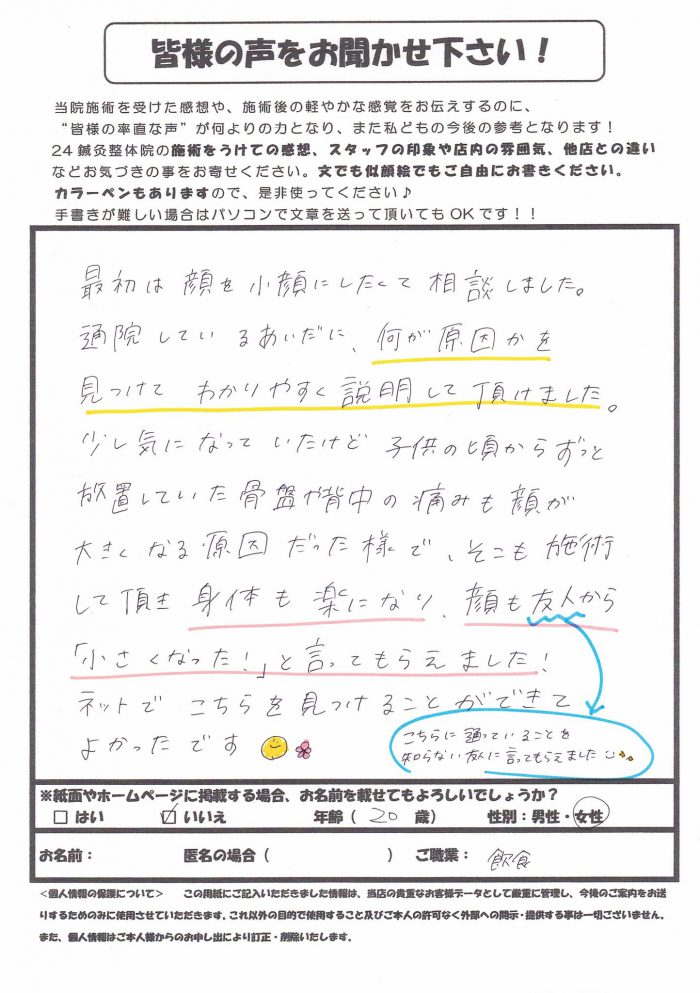 皆様の声をお聞かせ下さい！
当院施術を受けた感想や、施術後の軽やかな感覚をお伝えするのに、
“皆様の率直な声”が何よりの力となり、また私どもの今後の参考となります！
24鍼灸整体院の施術をうけての感想、スタッフの印象や店内の雰囲気、他店との違い
などお気づきの事をお寄せください。文でも似顔絵でもご自由にお書きください。
カラーペンもありますので、是非使ってください♪
手書きが難しい場合はパソコンで文章を送って頂いてもOKです！！
最初は顔を小顔にしたくて相談しました。
通院しているあいだに、何が原因かを
見つけてわかりやすく説明して頂けました。
少し気になっていたけど子供の頃からずっと
放置していた骨盤や背中の痛みも顔が
大きくなる原因だった様で、そこも施術
して頂き身体も楽になり、顔も友人から
「小さくなった！」と言ってもらえました！
ネットでこちらを見つけることができて
よかったです
こちらに通っていることを
知らない友人に言ってもらえました
※紙面やホームページに掲載する場合、お名前を載せてもよろしいでしょうか？
□ はい ☑ いいえ 年齢（ 20 歳） 性別：男性・女性
お名前： 匿名の場合（ ） ご職業： 飲食
＜個人情報の保護について＞ この用紙にご記入いただきました情報は、当店の貴重なお客様データとして厳重に管理し、今後のご案内をお送
りするためのみに使用させていただきます。これ以外の目的で使用すること及びご本人の許可なく外部への開示・提供する事は一切ございません。
また、個人情報はご本人様からのお申し出により訂正・削除いたします。